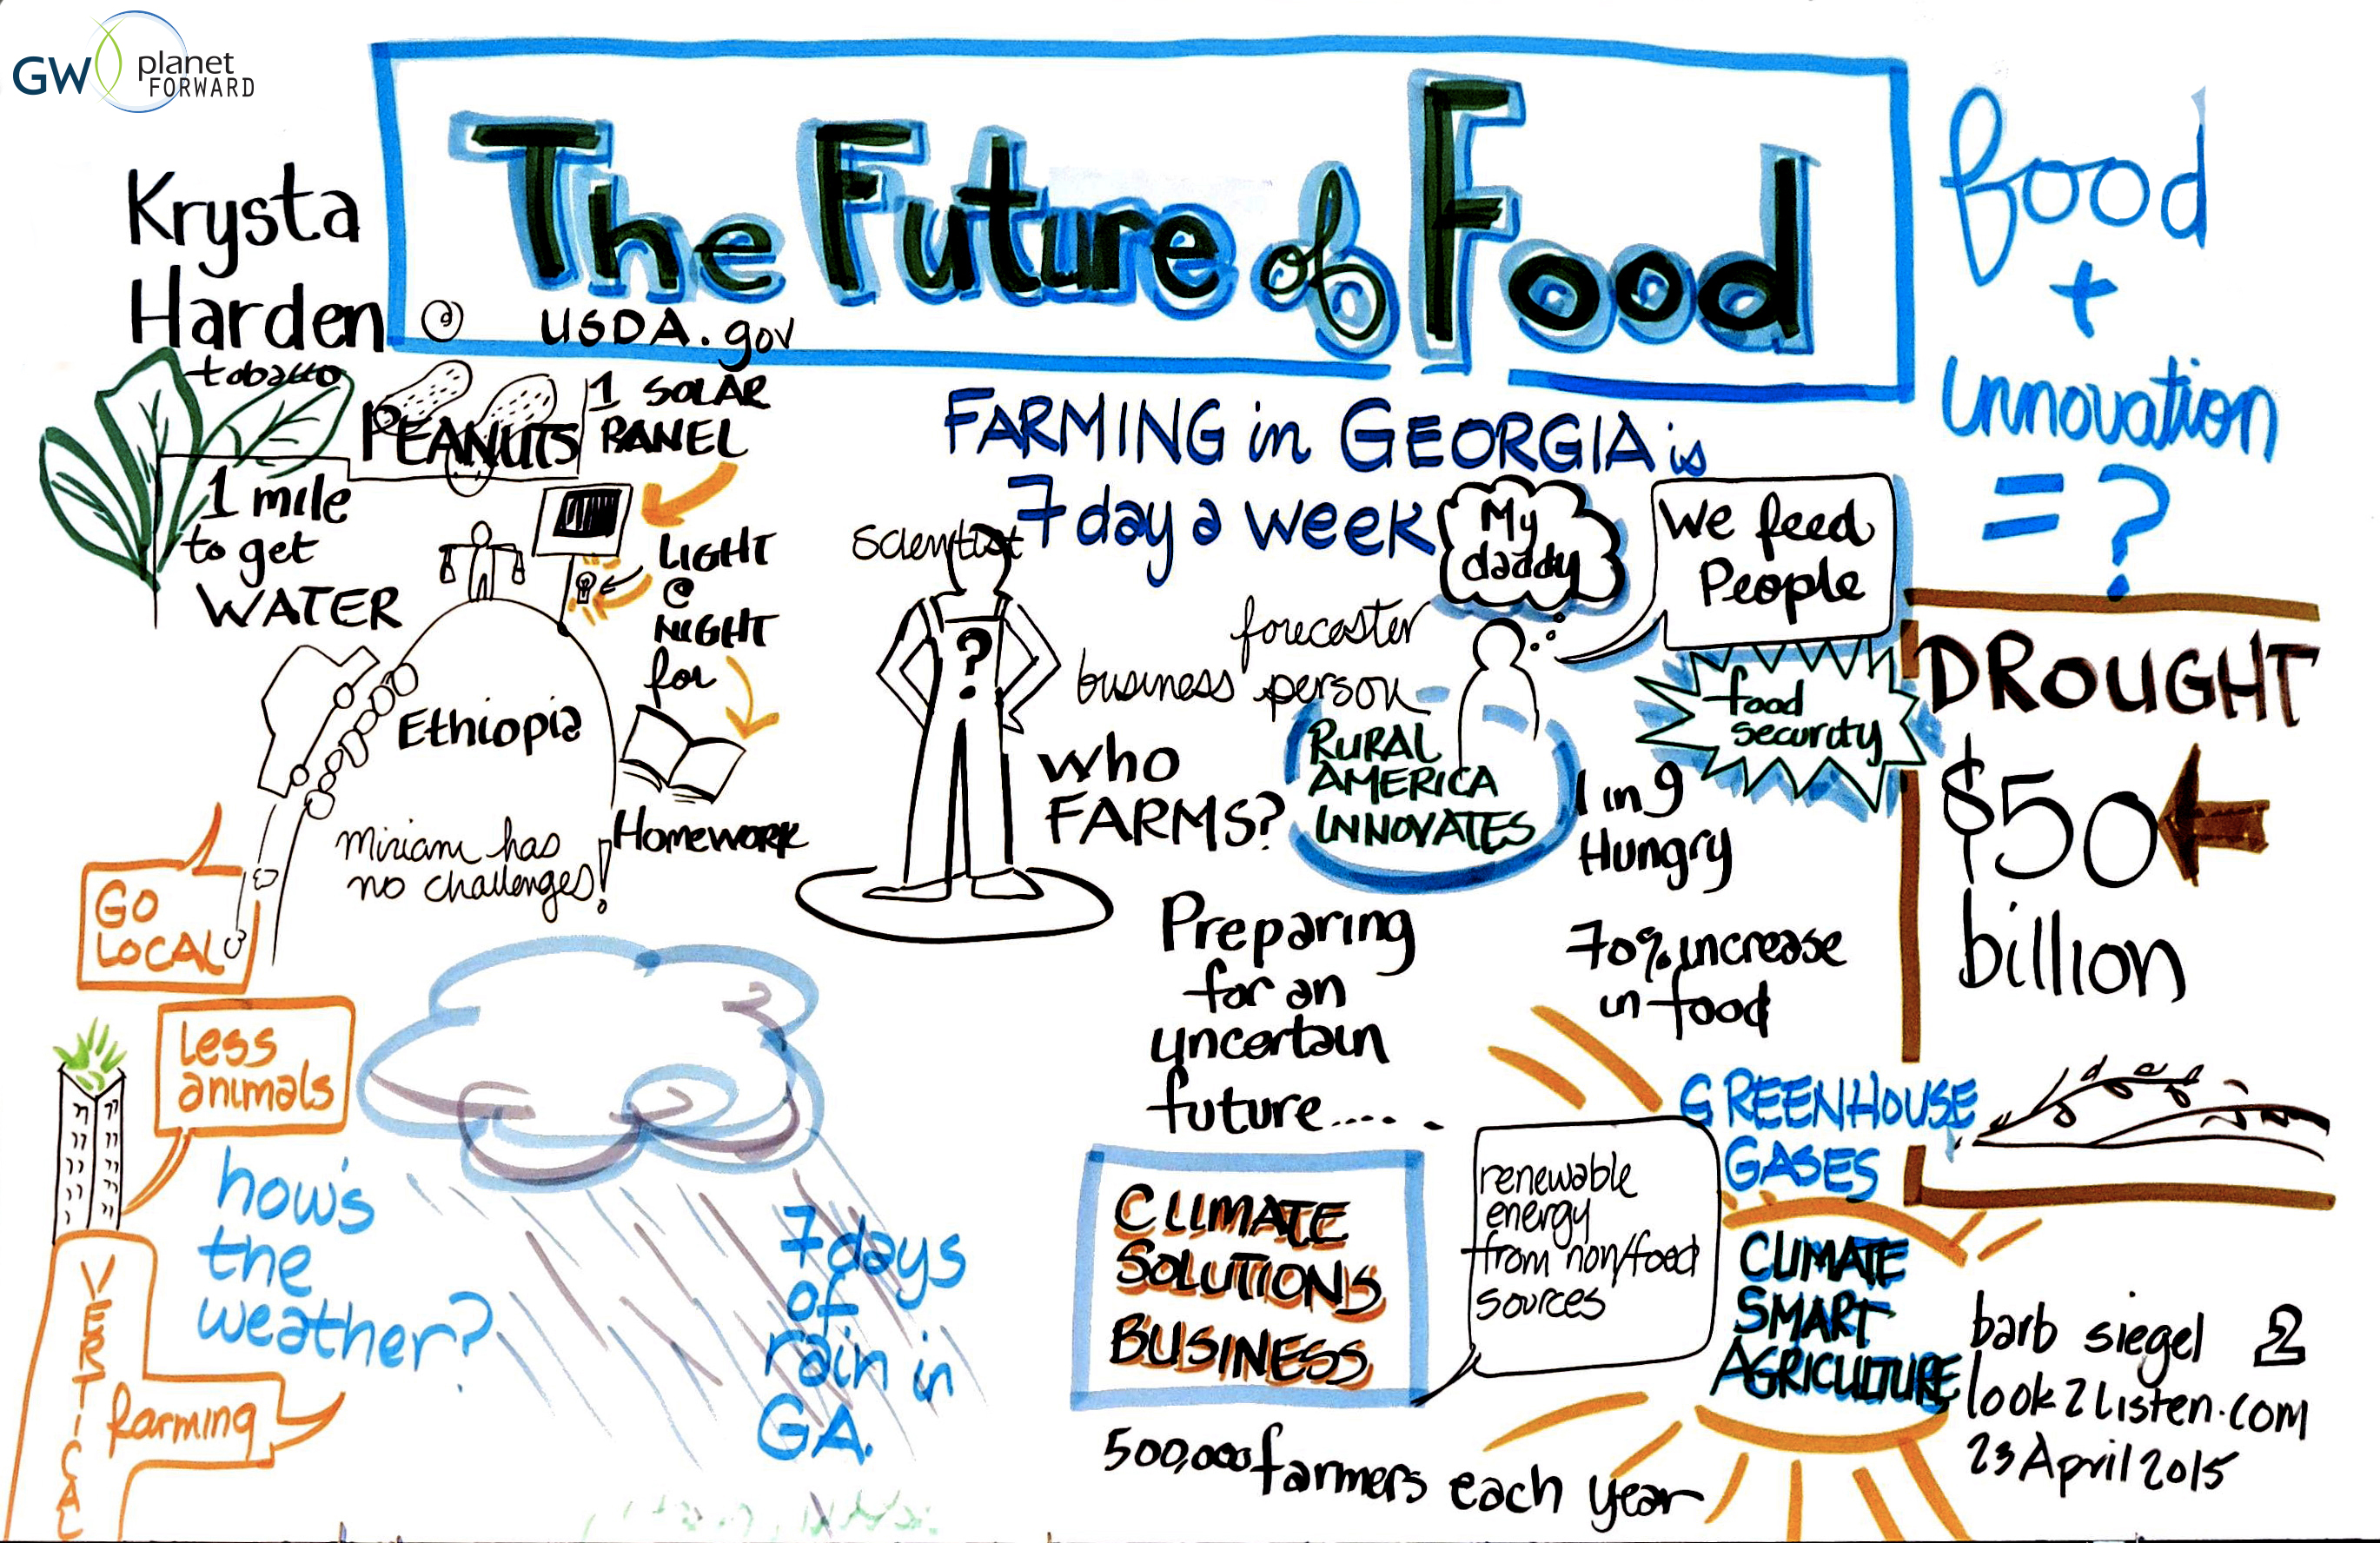 GW planet
FORWARD
The Future of Food
Krysta
Harden @ USDA.gov
food
+
innovation
= ?
tobacco
PEANUTS
1 SOLAR
PANEL
1 mile
to get
WATER
LIGHT
@
NIGHT
for
Homework
Ethiopia
Miriam has
no challenges!
FARMING in GEORGIA is
7 day a week
Scientist
?
forecaster
business person
who
FARMS?
My
daddy
We feed
People
RURAL
AMERICA
INNOVATES
food
security
1 in 9
Hungry
70% increase
in food
DROUGHT
$50
billion
GO
LOCAL
less
animals
VERTICAL
farming
how's
the
weather?
7 days
of
rain in
GA.
Preparing
for an
uncertain
future.....
CLIMATE
SOLUTIONS
BUSINESS
renewable
energy
from non/food
sources
500,000 farmers each year
GREENHOUSE
GASES
CLIMATE
SMART
AGRICULTURE
barb siegel 2
look2listen.com
23 April 2015